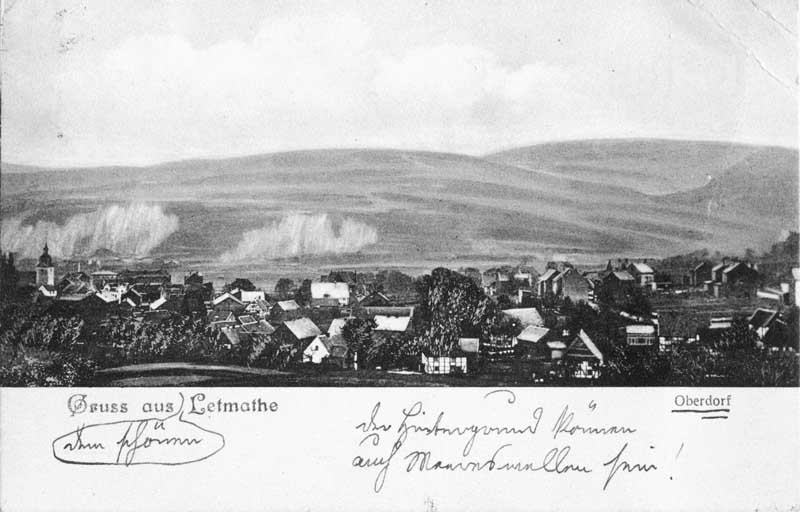 Gruss aus Letmathe
dem schönen
Oberdorf
der Hintergrund können
auch Meereswellen sein!